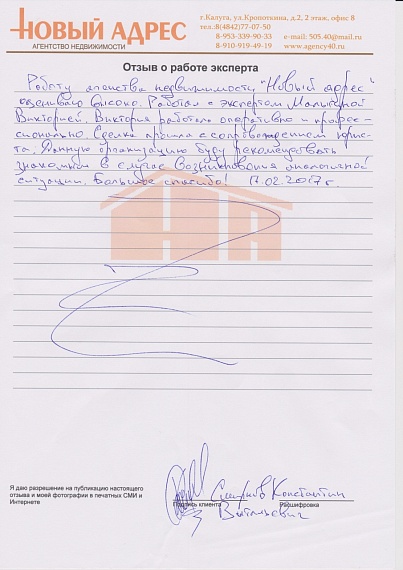 НОВЫЙ АДРЕС
АГЕНТСТВО НЕДВИЖИМОСТИ
г.Калуга, ул.Кропоткина, д.2, 2 этаж, офис 8
тел.:8(4842)77-07-50
8-953-339-90-33 e-mail: 505.40@mail.ru
8-910-919-49-19 www.agency40.ru
Отзыв о работе эксперта
Работу агенства недвижимости "Новый адрес"
оцениваю высоко. Работал с экспертом
Викторией. Виктория работала оперативно и профес-
сионально. Сделка прошла с сопровождением юрис-
та. Данную организацию буду рекомендовать
знакомым в случае возникновения аналогичной
ситуации. Большое спасибо! 17.02.2017г
Я даю разрешение на публикацию настоящего
отзыва и моей фотографии в печатных СМИ и
Интернете
Смирнов Константин
Подпись клиента Расшифровка
Витальевич